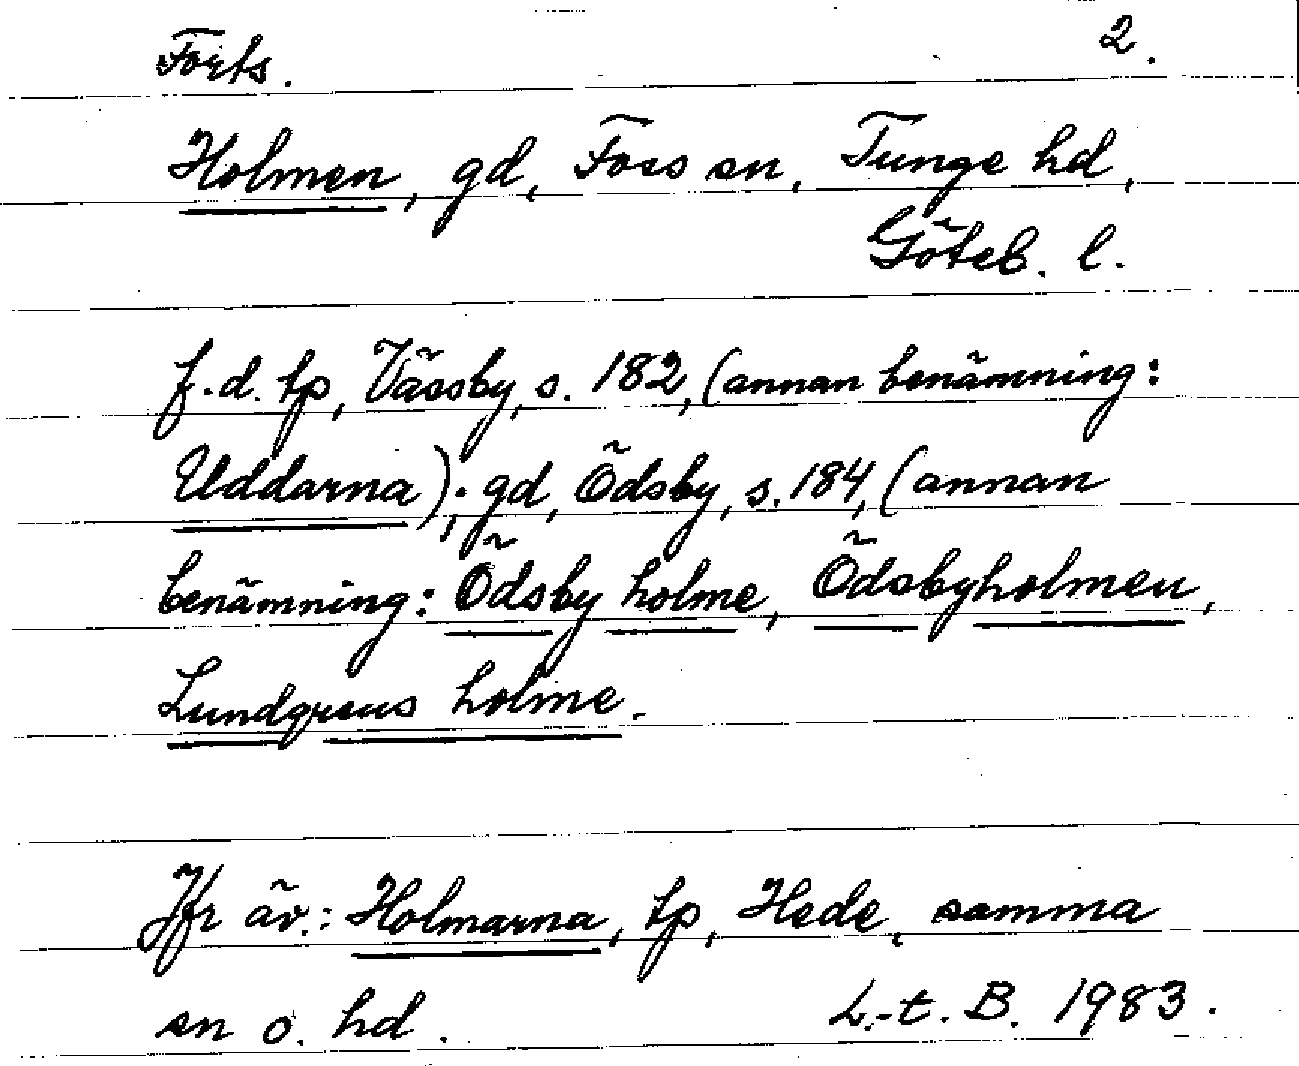 Forts. 2.
Holmen, gd, Foss sn, Tunge hd,
Göteb. l.
f.d. tp, Vässby, s. 182, (annan benämning:
Uddarna); gd, Ödsby, s. 184, (annan
benämning: Ödsby holme, Ödsbyholmen,
Lundgrens holme.
Jfr äv.: Holmarna, tp, Hede, samma
sn o. hd. L.-t. B. 1983.